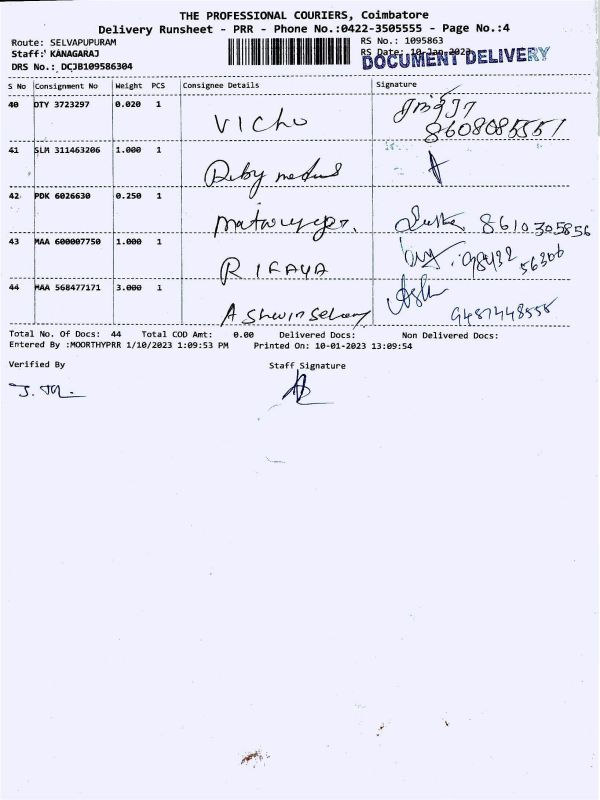 THE PROFESSIONAL COURIERS, Coimbatore
Delivery Runsheet - PRR - Phone No.:0422-3505555 - Page No.:4
Route: SELVAPUPURAM
RS No.: 1095863
Staff: KANAGARAJ
RS Date: 10-Jan-2023
DOCUMENT DELIVERY
DRS No.: DCJB109586304
S No Consignment No Weight PCS Consignee Details Signature
40 DTY 3723297 0.020 1
VICHU
8608085551
41 SLM 311463206 1.000 1
Ruby
42 PDK 6026630 0.250 1
8610305856
43 MAA 600007750 1.000 1
RIFAYA
98432 56366
44 MAA 568477171 3.000 1
Ashwin Selvam
Ash
9487448555
Total No. Of Docs: 44 Total COD Amt: 0.00 Delivered Docs: Non Delivered Docs:
Entered By :MOORTHYPRR 1/10/2023 1:09:53 PM Printed On: 10-01-2023 13:09:54
Verified By Staff Signature